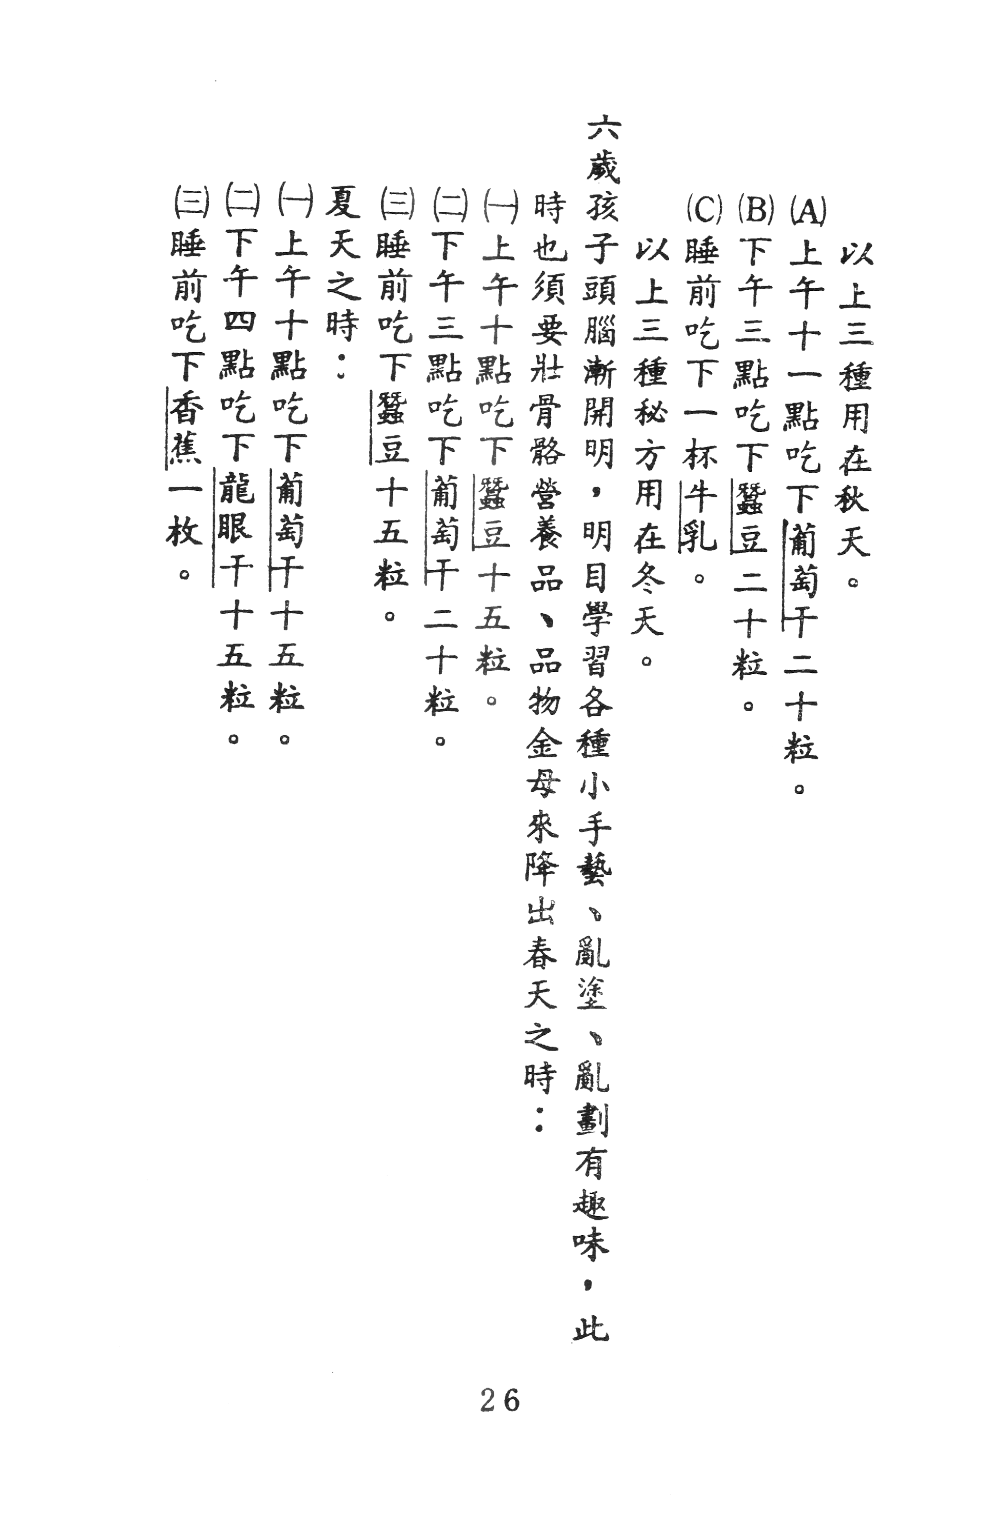 以上三種用在秋天。
(A)上午十一點吃下葡萄干二十粒。
(B)下午三點吃下蠶豆二十粒。
(C)睡前吃下一杯牛乳。
以上三種秘方用在冬天。
六歲孩子頭腦漸開明，明目學習各種小手藝、亂塗、亂劃有趣味，此
時也須要壯骨骼營養品、品物金母來降出春天之時：
㈠上午十點吃下蠶豆十五粒。
㈡下午三點吃下葡萄干二十粒。
㈢睡前吃下蠶豆十五粒。
夏天之時：
㈠上午十點吃下葡萄干十五粒。
㈡下午四點吃下龍眼干十五粒。
㈢睡前吃下香蕉一枚。
26